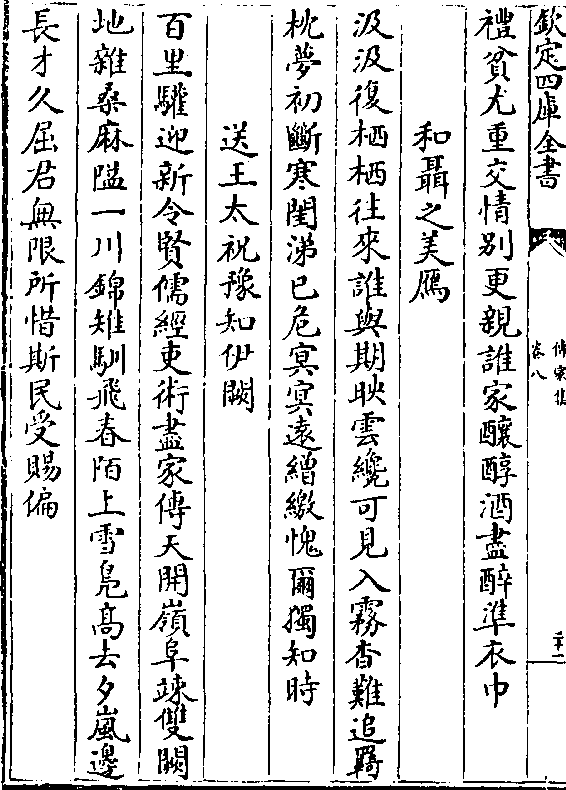 欽定四庫全書
傳家集
卷八
禮貧尤重交情别更親誰家釀醇酒盡醉準衣巾
和聶之美鴈
汲汲復栖栖往來誰與期映雲纔可見入霧杳難追羇
枕夢初斷寒閨涕已危冥冥遠繒繳愧爾獨知時
送王太祝豫知伊闕
百里驩迎新令賢儒經吏術盡家傳天開嶺阜竦雙闕
地雜桑麻隘一川錦雉馴飛春陌上雪鳬髙去夕嵐邊
長才久屈君無限所惜斯民受賜偏